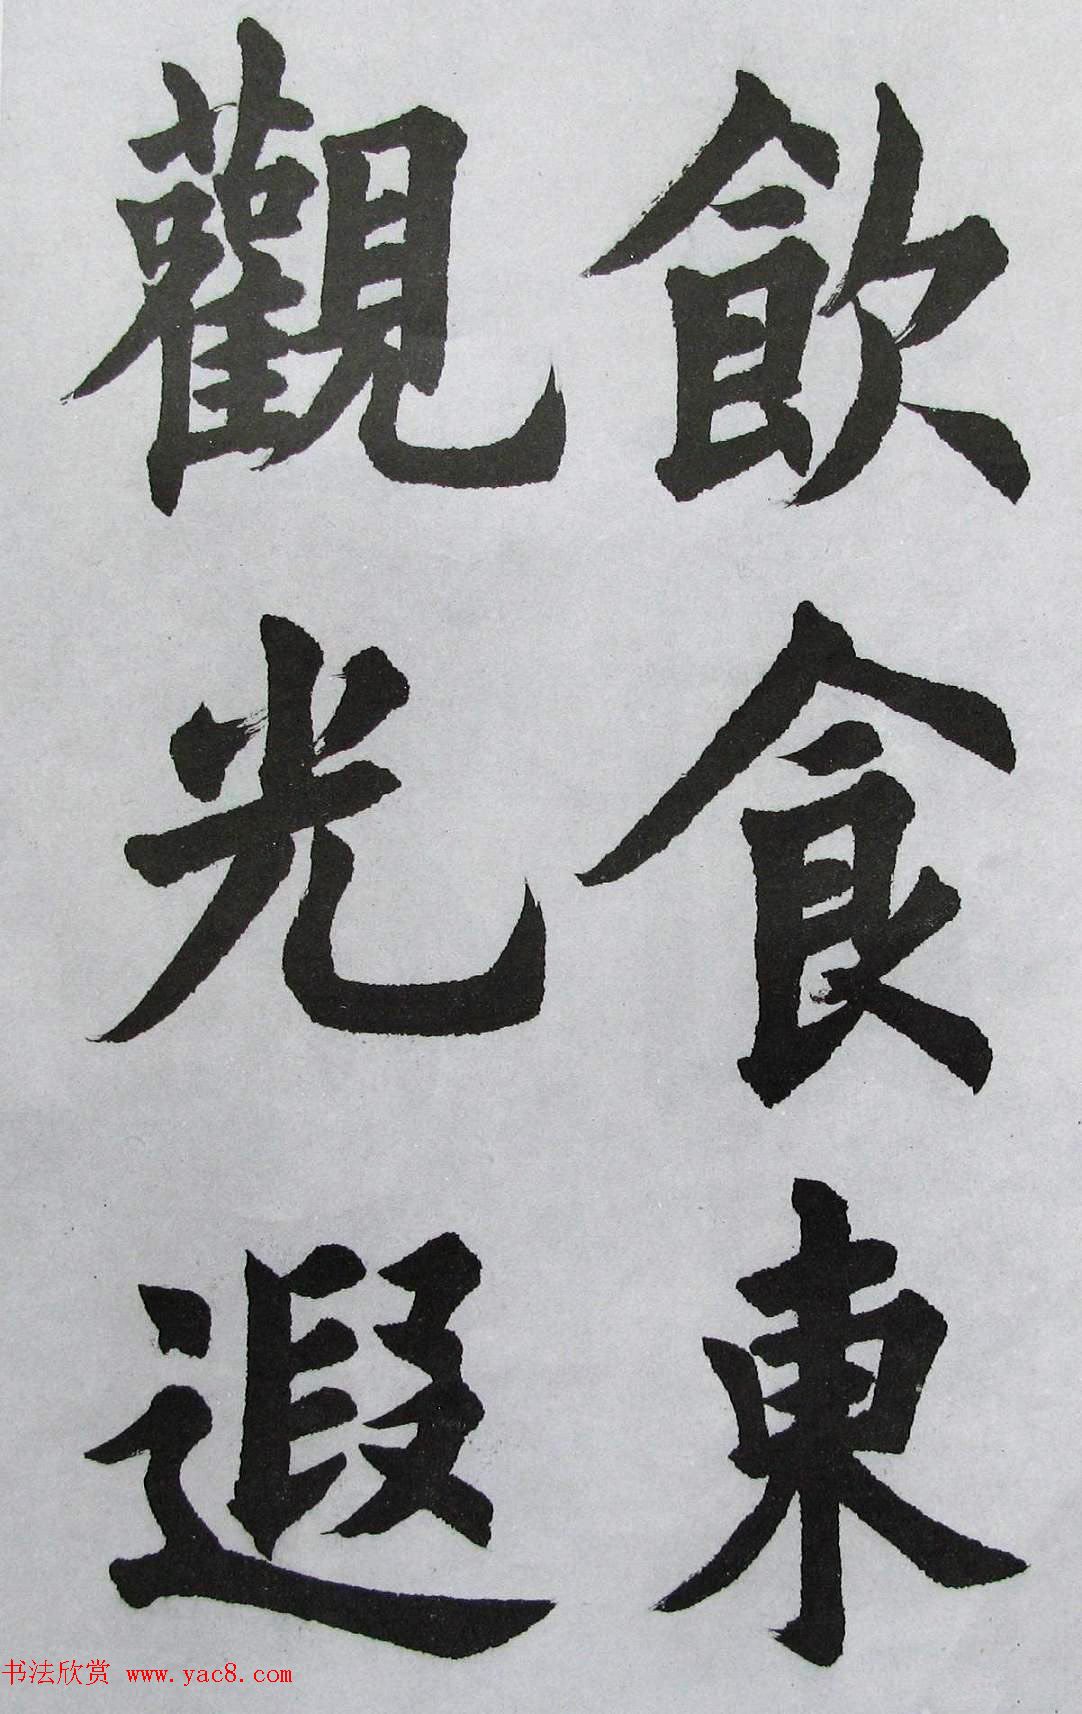 飲食東
觀光遐
书法欣赏 www.yac8.com